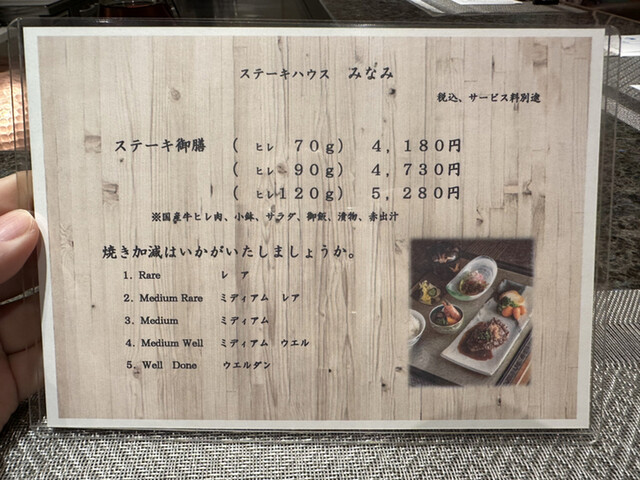 ステーキハウス　みなみ
税込、サービス料別途
ステーキ御膳　（　ヒレ　７０ｇ）　４，１８０円
（　ヒレ　９０ｇ）　４，７３０円
（　ヒレ１２０ｇ）　５，２８０円
※国産牛ヒレ肉、小鉢、サラダ、御飯、漬物、赤出汁
焼き加減はいかがいたしましょうか。
1. Rare　レ　ア
2. Medium Rare　ミディアム　レア
3. Medium　ミディアム
4. Medium Well　ミディアム　ウエル
5. Well　Done　ウエルダン